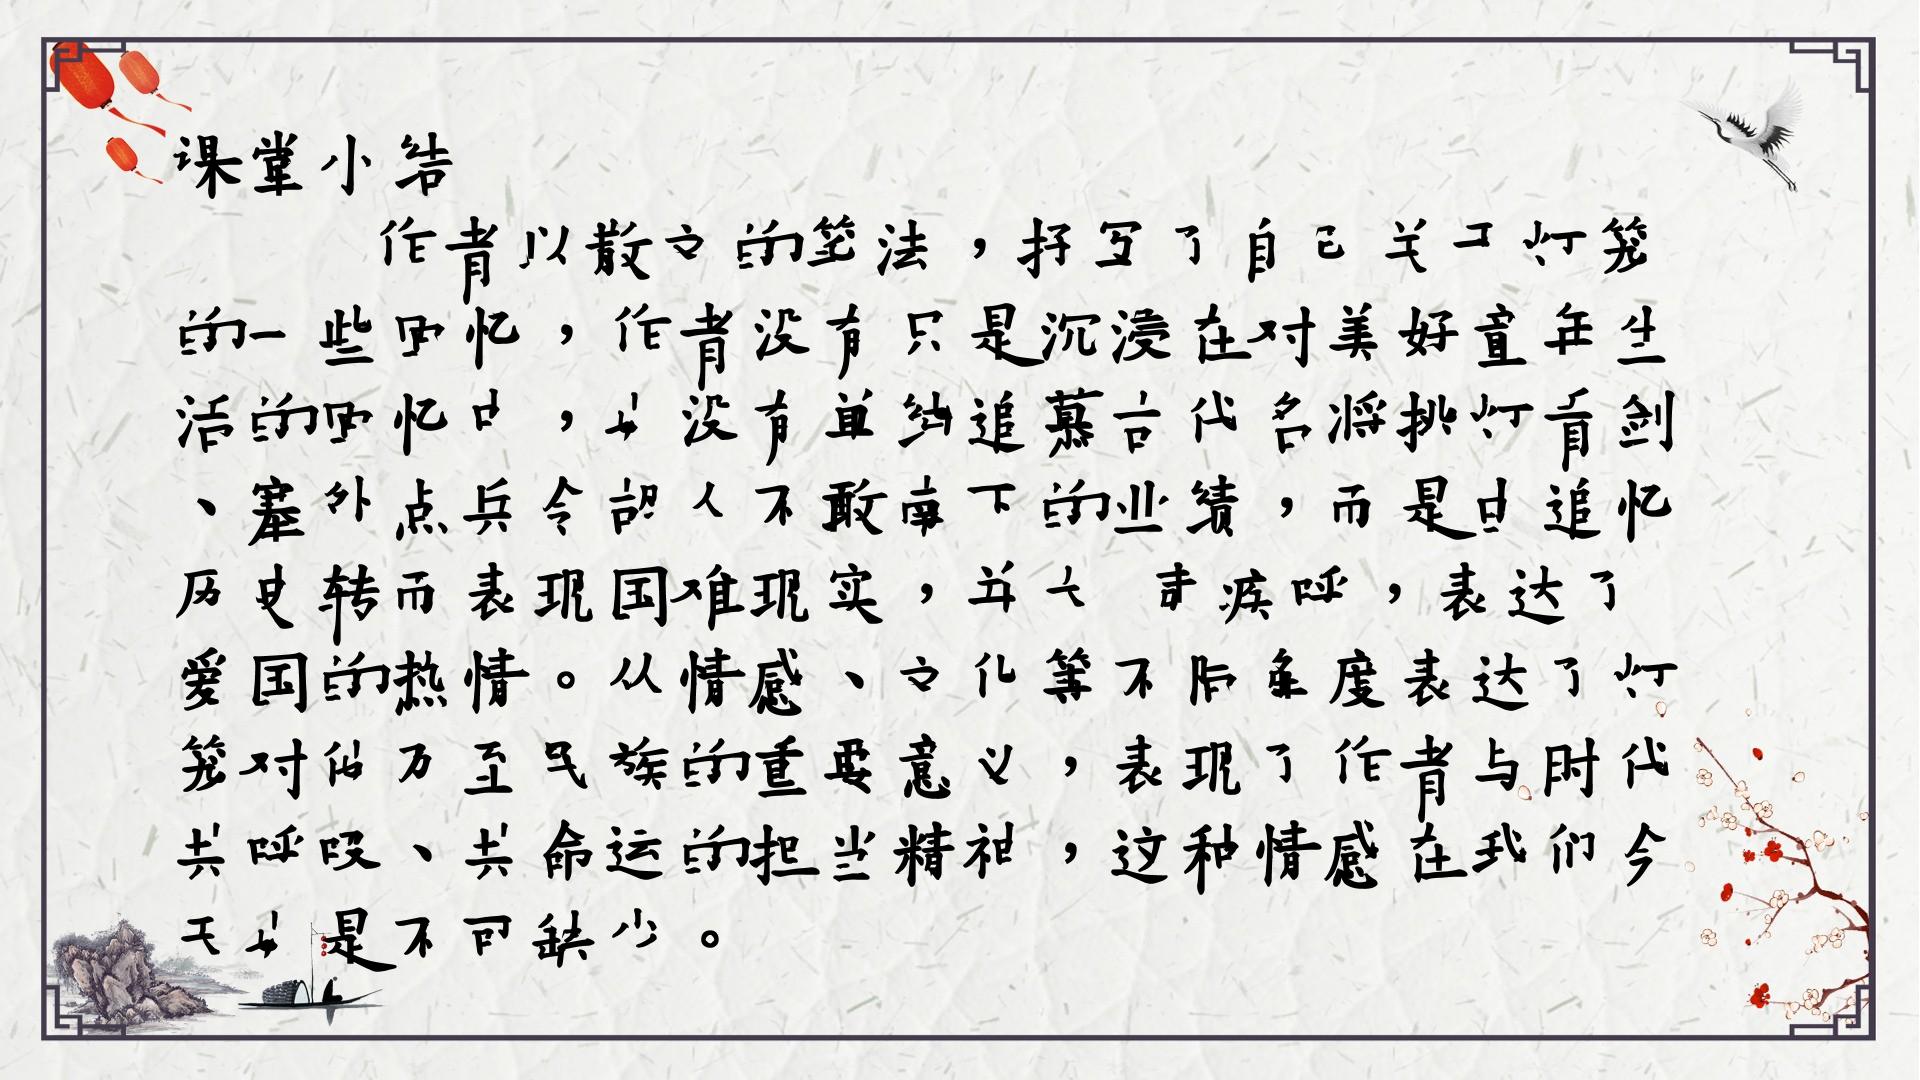 课堂小结
作者以散文的笔法，抒写了自己关于灯笼
的一些回忆，作者没有只是沉浸在对美好童年生
活的回忆中，也没有单纯追慕古代名将挑灯看剑
、塞外点兵令胡人不敢南下的业绩，而是由追忆
历史转而表现国难现实，并大声疾呼，表达了
爱国的热情。从情感、文化等不同角度表达了灯
笼对个人乃至民族的重要意义，表现了作者与时代
共呼吸、共命运的担当精神，这种情感在我们今
天也是不可缺少。